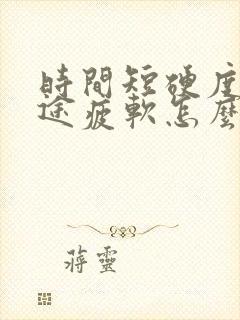 時間短硬度
途疲軟怎麼
蔣靈